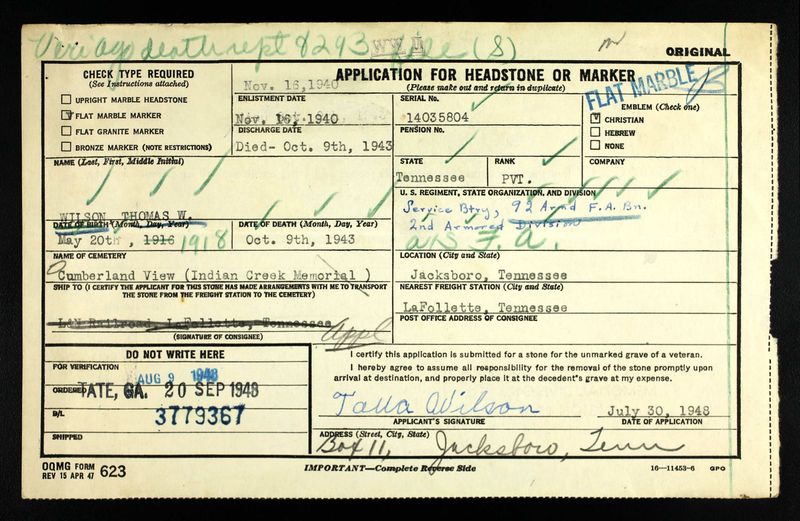 death rept 8293 WW II (S)
ORIGINAL
CHECK TYPE REQUIRED
(See Instructions attached)
UPRIGHT MARBLE HEADSTONE
FLAT MARBLE MARKER
FLAT GRANITE MARKER
BRONZE MARKER (NOTE RESTRICTIONS)
APPLICATION FOR HEADSTONE OR MARKER
(Please make out and return in duplicate)
FLAT MARBLE
Nov. 16,1940
ENLISTMENT DATE
Nov. 16, 1940
DISCHARGE DATE
Died- Oct. 9th, 1943
SERIAL No.
14035804
PENSION No.
EMBLEM (Check one)
CHRISTIAN
HEBREW
NONE
NAME (Last, First, Middle Initial)
WILSON, THOMAS W.
STATE
Tennessee
RANK
PVT.
COMPANY
U. S. REGIMENT, STATE ORGANIZATION, AND DIVISION
Service Btry, 92 Armd F.A. Bn.
2nd Armored Division
F.A.
DATE OF BIRTH (Month, Day, Year)
May 20th, 1916 1918
DATE OF DEATH (Month, Day, Year)
Oct. 9th, 1943
NAME OF CEMETERY
Cumberland View (Indian Creek Memorial )
LOCATION (City and State)
Jacksboro, Tennessee
SHIP TO (I CERTIFY THE APPLICANT FOR THIS STONE HAS MADE ARRANGEMENTS WITH ME TO TRANSPORT THE STONE FROM THE FREIGHT STATION TO THE CEMETERY)
L&N Railroad, LaFollette, Tennessee
Appl
(SIGNATURE OF CONSIGNEE)
NEAREST FREIGHT STATION (City and State)
LaFollette, Tennessee
POST OFFICE ADDRESS OF CONSIGNEE
DO NOT WRITE HERE
FOR VERIFICATION
AUG 9 1948
ORDERED
TATE, GA. 20 SEP 1948
B/L
3779367
SHIPPED
I certify this application is submitted for a stone for the unmarked grave of a veteran.
I hereby agree to assume all responsibility for the removal of the stone promptly upon
arrival at destination, and properly place it at the decedent's grave at my expense.
Talla Wilson
July 30, 1948
APPLICANT'S SIGNATURE
DATE OF APPLICATION
ADDRESS (Street, City, State)
Box 11, Jacksboro, Tenn
OQMG FORM
REV 15 APR 47 623
IMPORTANT—Complete Reverse Side
16—11453-6 GPO